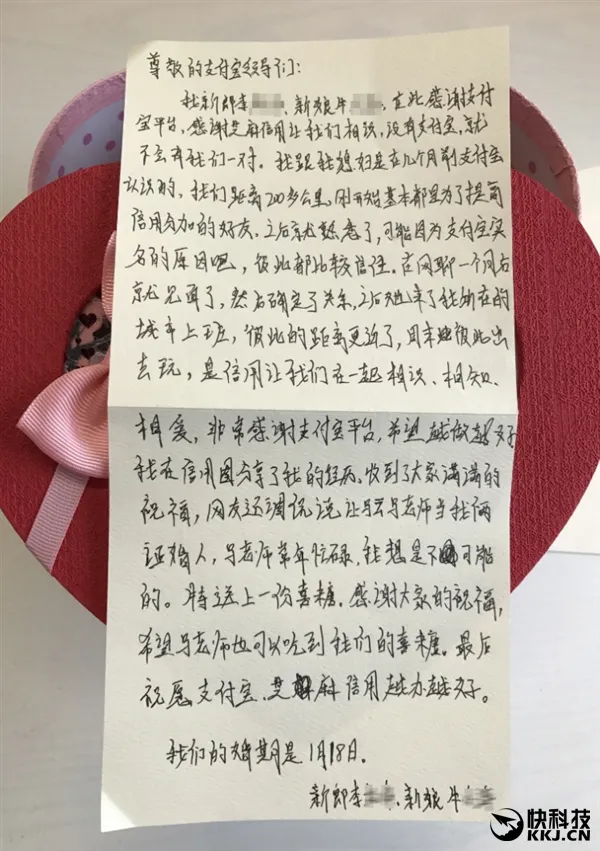 尊敬的支付宝领导们：
我新郎李 新娘牛 在此感谢支付
宝平台，感谢芝麻信用让我们相识，没有支付宝，就
不会有我们一对。我跟我媳妇是在几个月前支付宝
认识的，我们距离200多公里，刚开始基本都是为了提高
信用久加的好友，之后就熟悉了，可能因为支付宝实
名的原因吧，彼此都比较信任。在网聊一个月后
就见面了，然后确定了关系，之后她来了我所在的
城市上班，彼此的距离更近了，周末也彼此出
去玩，是信用让我们在一起相识、相知、
相爱，非常感谢支付宝平台，希望越做越好
我在信用圈分享了我的经历，收到了大家满满的
祝福，网友还调侃说让马云马老师当我俩
证婚人，马老师常年忙碌，我想是不可能
的。特送上一份喜糖，感谢大家的祝福，
希望马老师也可以吃到我们的喜糖。最后
祝愿支付宝、芝麻信用越办越好。
我们的婚期是1月18日。
新郎李 、新娘牛
快科技
KKJ.CN